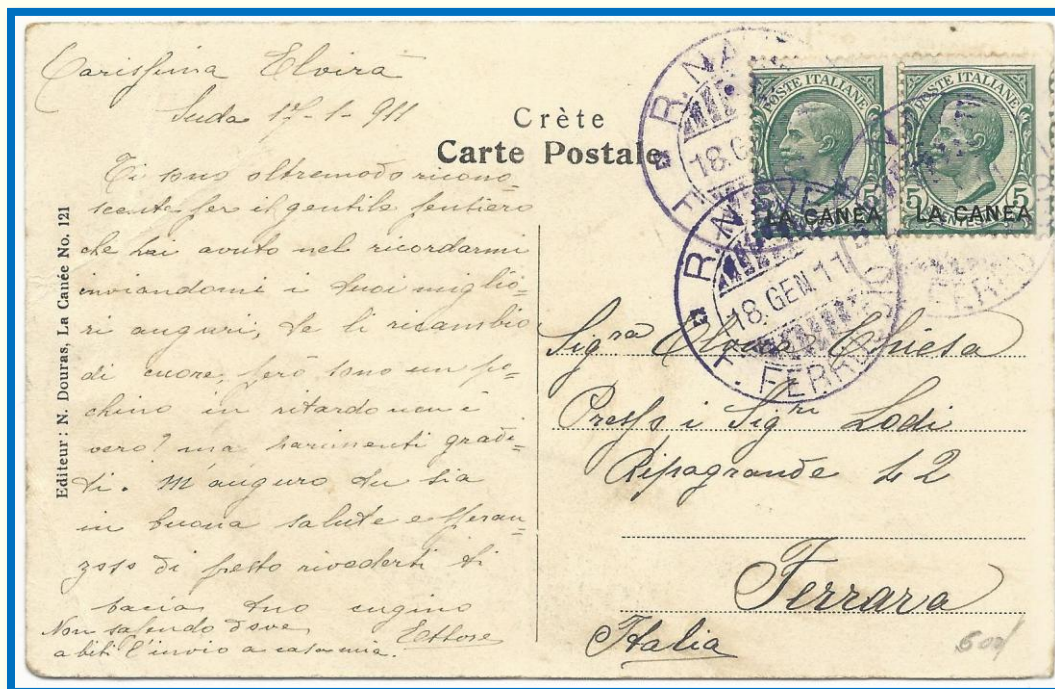 Carissima Elvira
Suda 17-1-911
Ti sono oltremodo ricono=
scente per il gentile pensiero
che hai avuto nel ricordarmi
inviandomi i tuoi miglio=
ri auguri, te li ricambio
di cuore, però sono un po=
chino in ritardo non è
vero? ma parimenti gradi=
ti. M'auguro tu sia
in buona salute e speran=
zoso di presto rivederti ti
bacia tuo cugino
Ettore
Non sapendo dove
abiti l'invio a casa mia.
Editeur: N. Douras, La Canée No. 121
Crète
Carte Postale
POSTE ITALIANE
5
LA CANEA
POSTE ITALIANE
5 5
LA CANEA
R. NA
18.G
R. N
18.GEN.11
F. FERRUCCIO
FERRUCCIO
Sig.ra Elvira Chiesa
Presso i Sig.ri Lodi
Ripagrande 42
Ferrara
Italia